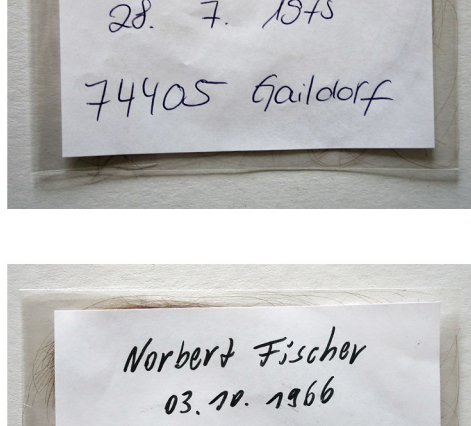 28. 7. 1975
74405 Gaildorf
Norbert Fischer
03. 10. 1966